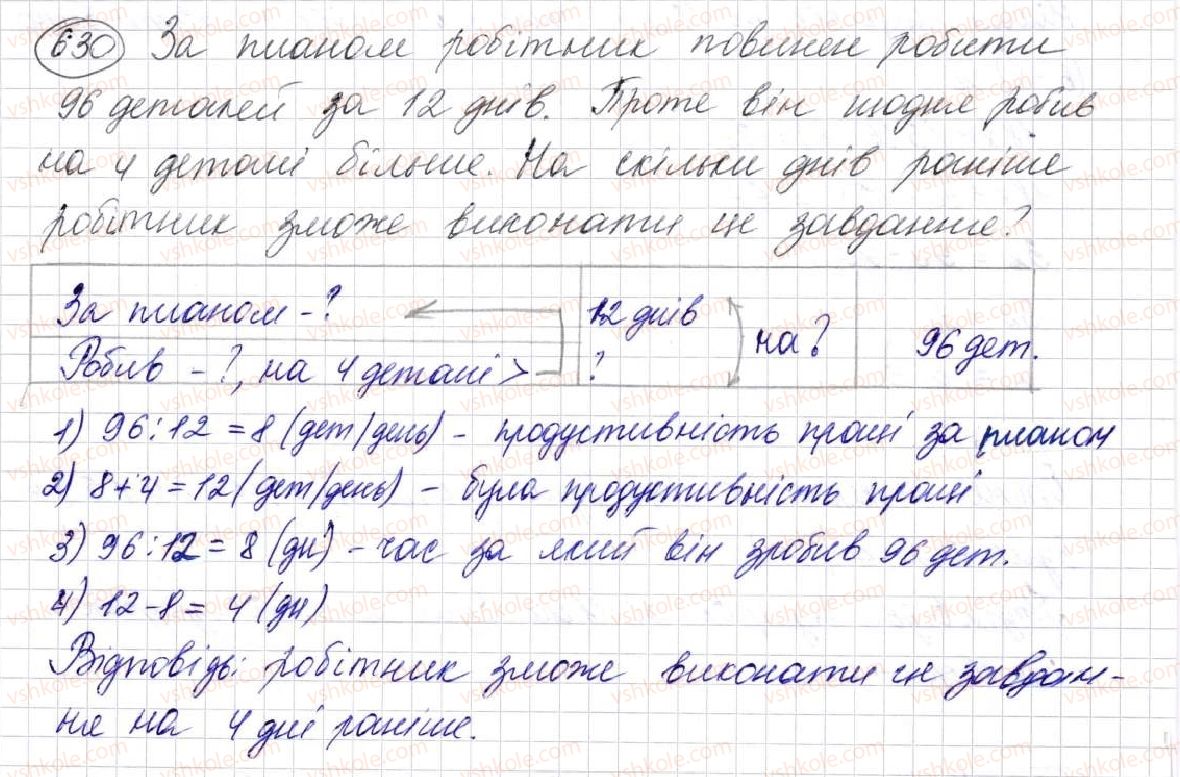 630 За планом робітник повинен робити
96 деталей за 12 днів. Проте він щодня робив
на 4 деталі більше. На скільки днів раніше
робітник зможе виконати це завдання?
За планом - ? 12 днів на ? 96 дет.
Робив - ?, на 4 деталі > ?
1) 96 : 12 = 8 (дет/день) - продуктивність праці за планом
2) 8 + 4 = 12 (дет/день) - була продуктивність праці
3) 96 : 12 = 8 (дн) - час за який він зробив 96 дет.
4) 12 - 8 = 4 (дн)
Відповідь: робітник зможе виконати це завдан-
ня на 4 дні раніше.
vshkole.com